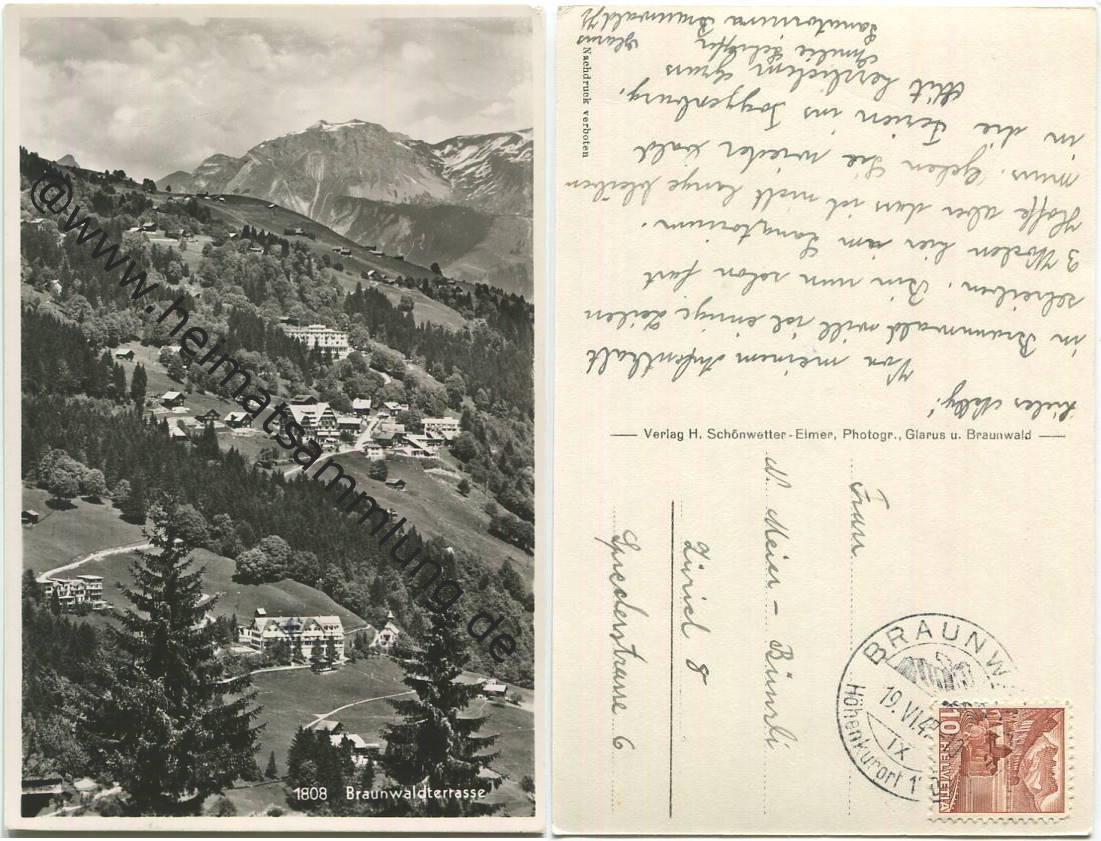 1808 Braunwaldterrasse
@www.helmatsammlung.de
Nachdruck verboten
Verlag H. Schönwetter-Elmer, Photogr., Glarus u. Braunwald
Von meinem Aufenthalt
in Braunwald will ich einige Zeilen
schreiben. Bin nun schon fast
3 Wochen hier im Sanatorium.
Hoffe aber dass ich nicht lange bleiben
muss. Gehen Sie wieder bald
in die Ferien ins Toggenburg.
Mit herzlichem Gruss
Sanatorium Braunwald
Glarus
Frau
N. Meier-
Zürich 8
6
BRAUNW
19. VI. 4
IX
Höhenkurort 1
10
HELVETIA